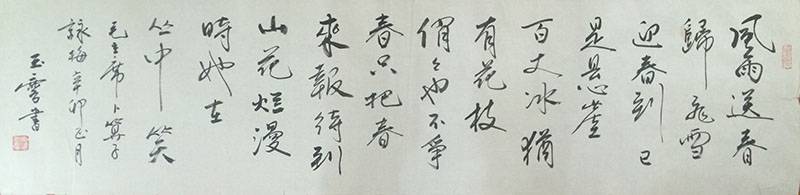 風雨送春
歸飛雪
迎春到已
是懸崖
百丈冰猶
有花枝
俏俏也不爭
春只把春
來報待到
山花烂漫
時她在
丛中笑
毛主席卜算子
詠梅辛卯正月
玉雪書